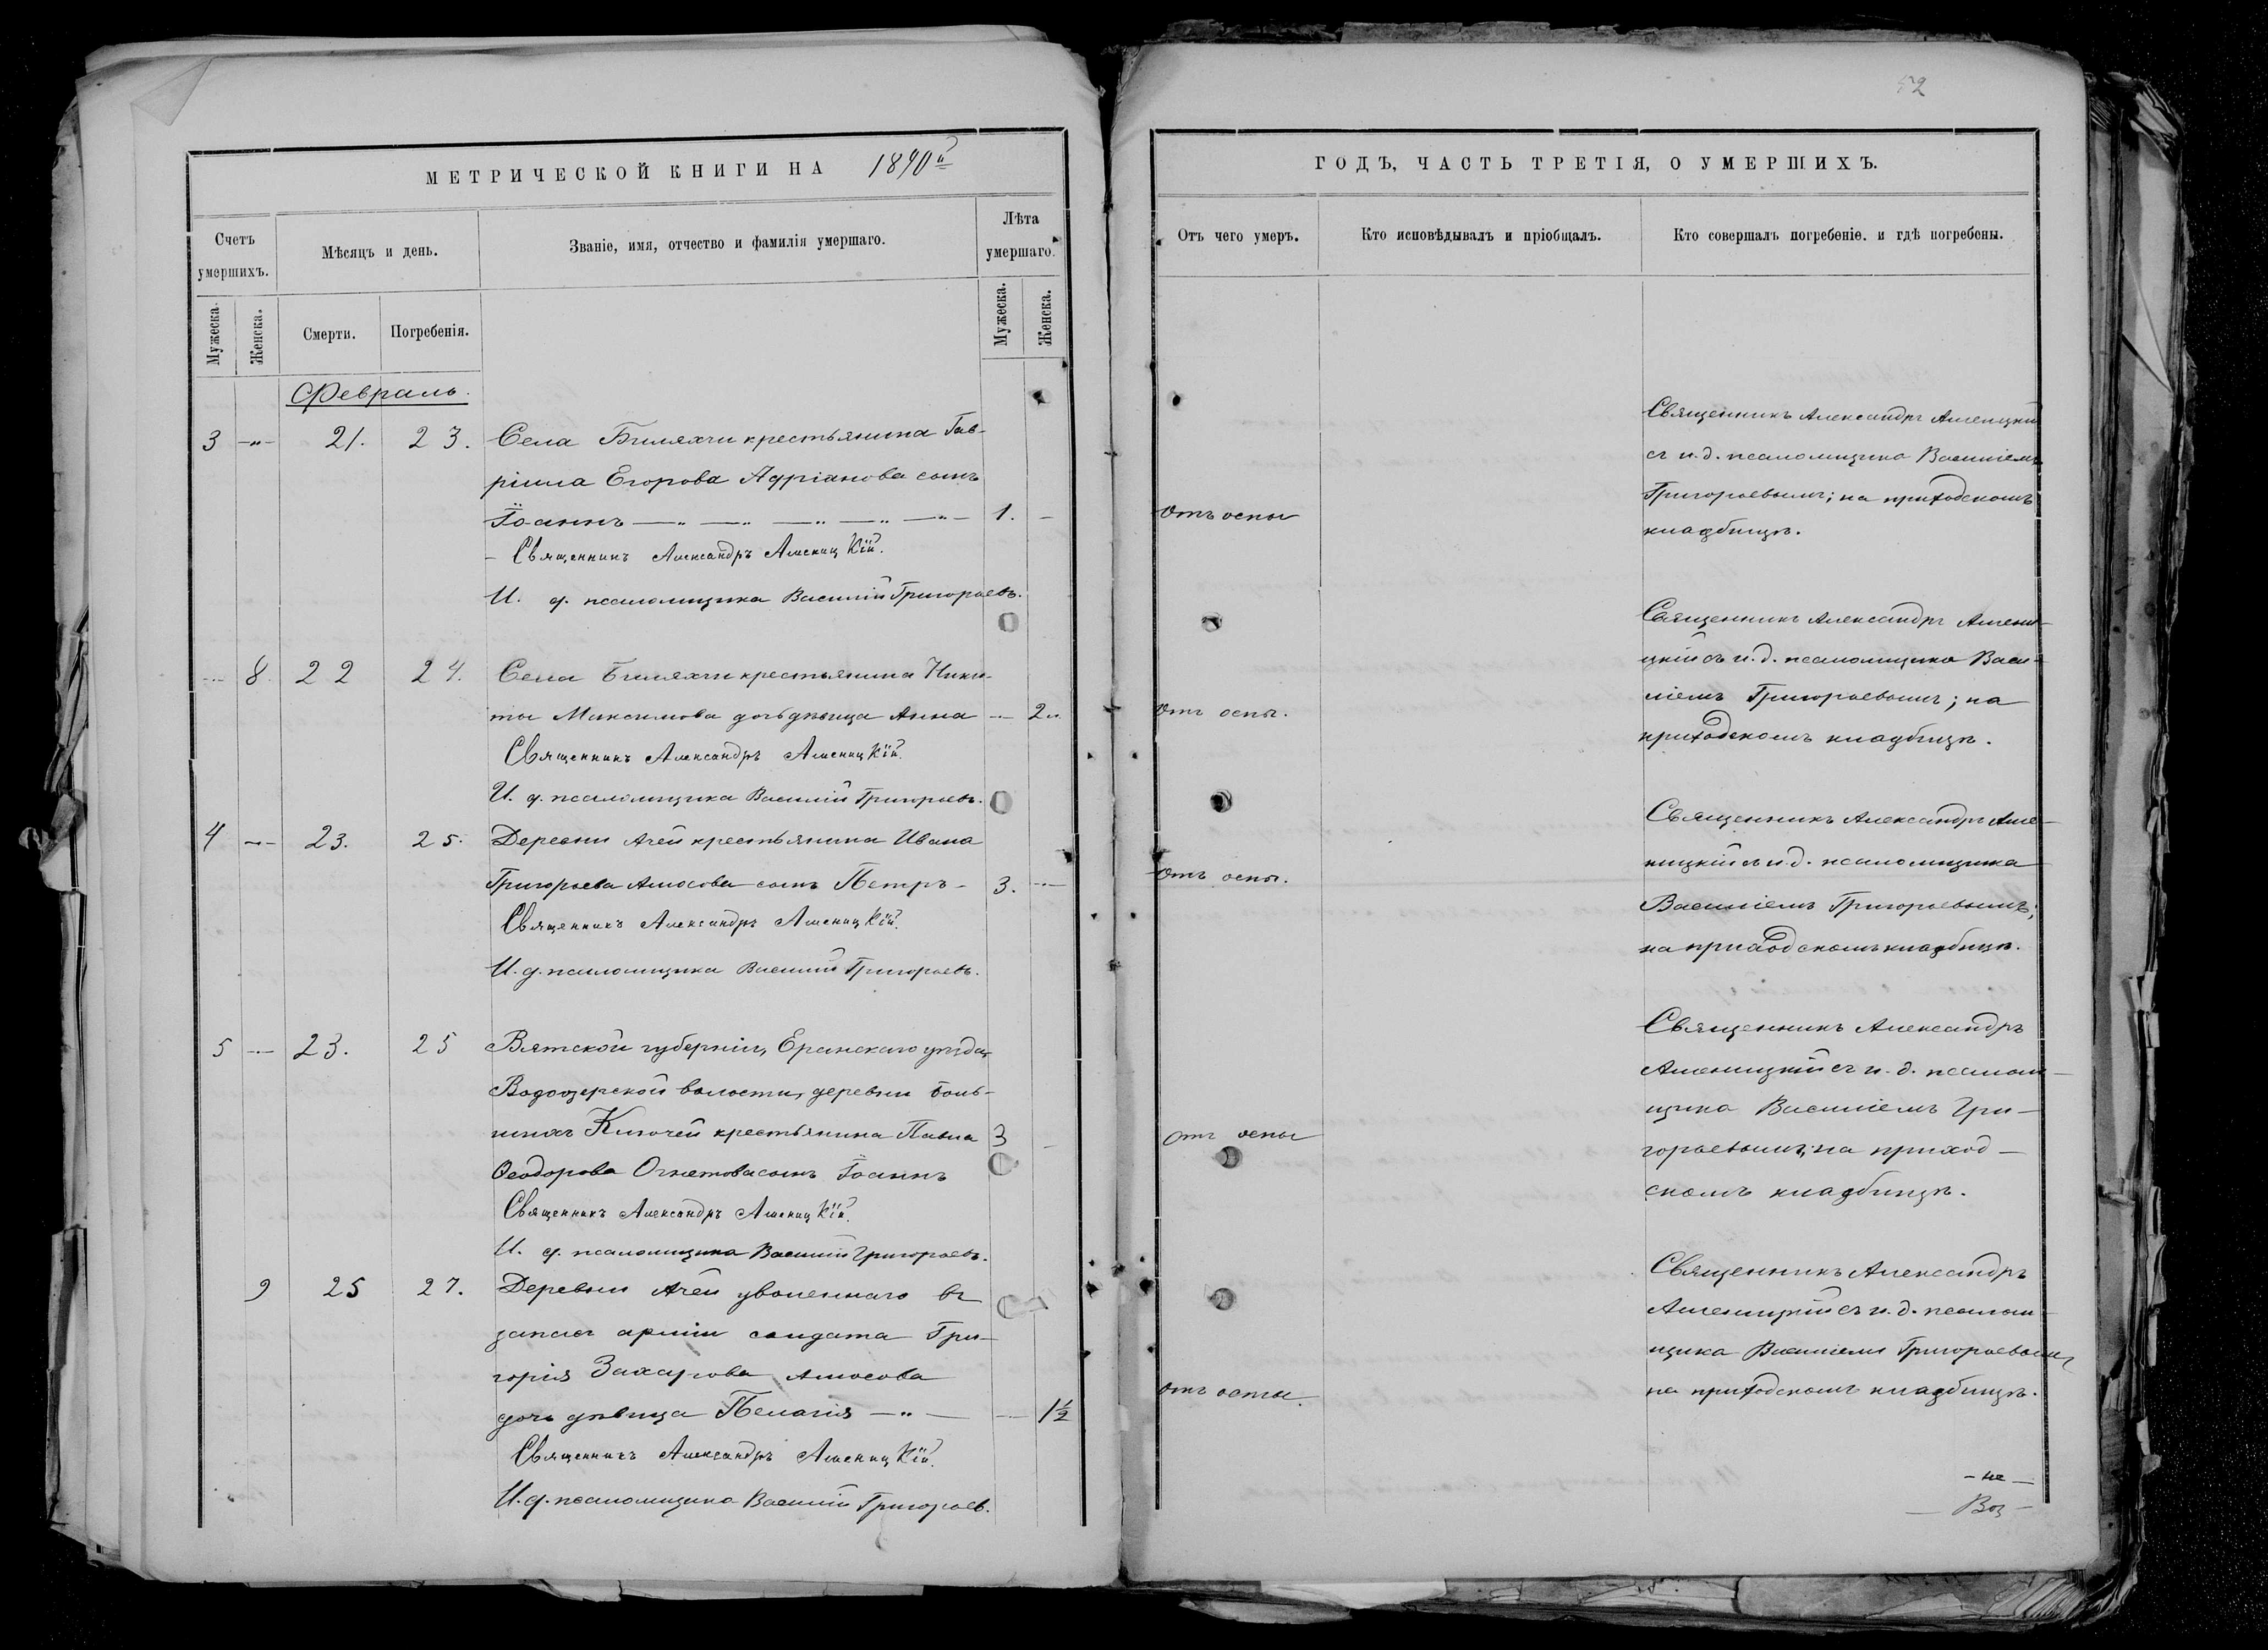 52
МЕТРИЧЕСКОЙ КНИГИ НА 1890й
Счетъ умершихъ.
Мѣсяцъ и день.
Званіе, имя, отчество и фамилія умершаго.
Лѣта умершаго.
Мужеска.
Женска.
Смерти.
Погребенія.
Мужеска.
Женска.
Февраль.
3 -"- 21. 23. Села Биляхчи крестьянина Гав-
ріила Егорова Адріанова сынъ
Іоаннъ —"— —"— —"— 1. -
- Священникъ Александръ Ашениц Кій.
И. д. псаломщика Василій Григорьевъ.
-"- 8. 22 24. Села Биляхчи крестьянина Ники-
ты Максимова дочь дѣвица Анна -"- 2"
Священникъ Александръ Ашениц Кій.
И. д. псаломщика Василій Григорьевъ.
4 -"- 23. 25. Деревни Ачей крестьянина Ивана
Григорьева Амосова сынъ Петръ - 3. -"-
Священникъ Александръ Ашениц Кій.
И. д. псаломщика Василій Григорьевъ.
5 -"- 23. 25 Вятской губерніи, Еранскаго уѣзда,
Водозерской волости, деревни Боль-
шихъ Ключей крестьянина Павла 3
Ѳеодорова Огнетова сынъ Іоаннъ
Священникъ Александръ Ашениц Кій.
И. д. псаломщика Василій Григорьевъ.
9 25 27. Деревни Ачей уволеннаго въ
запасъ арміи солдата Гри-
горія Захарова Амосова
дочь дѣвица Пелагія —"— -"- 1½
Священникъ Александръ Ашениц Кій.
И. д. псаломщика Василій Григорьев.
ГОДЪ, ЧАСТЬ ТРЕТІЯ, О УМЕРШИХЪ.
Отъ чего умеръ.
Кто исповѣдывалъ и пріобщалъ.
Кто совершалъ погребеніе. и гдѣ погребены.
Священникъ Александръ Ашеницкій
съ и. д. псаломщика Василіемъ
Григорьевымъ; на приходскомъ
Отъ оспы
кладбищѣ.
Священникъ Александръ Ашени-
цкій съ и. д. псаломщика Васи-
ліемъ Григорьевымъ; на
Отъ оспы.
приходскомъ кладбищѣ.
Священникъ Александръ Аше-
ницкій съ и. д. псаломщика
Отъ оспы.
Василіемъ Григорьевымъ;
на приходскомъ кладбищѣ.
Священникъ Александръ
Ашеницкій съ и. д. псалом-
щика Василіемъ Гри-
Отъ оспы
горьевымъ; на приход-
скомъ кладбищѣ.
Священникъ Александръ
Ашеницкій съ и. д. псалом-
щика Василіемъ Григорьевымъ
Отъ оспы.
на приходскомъ кладбищѣ.
- не -